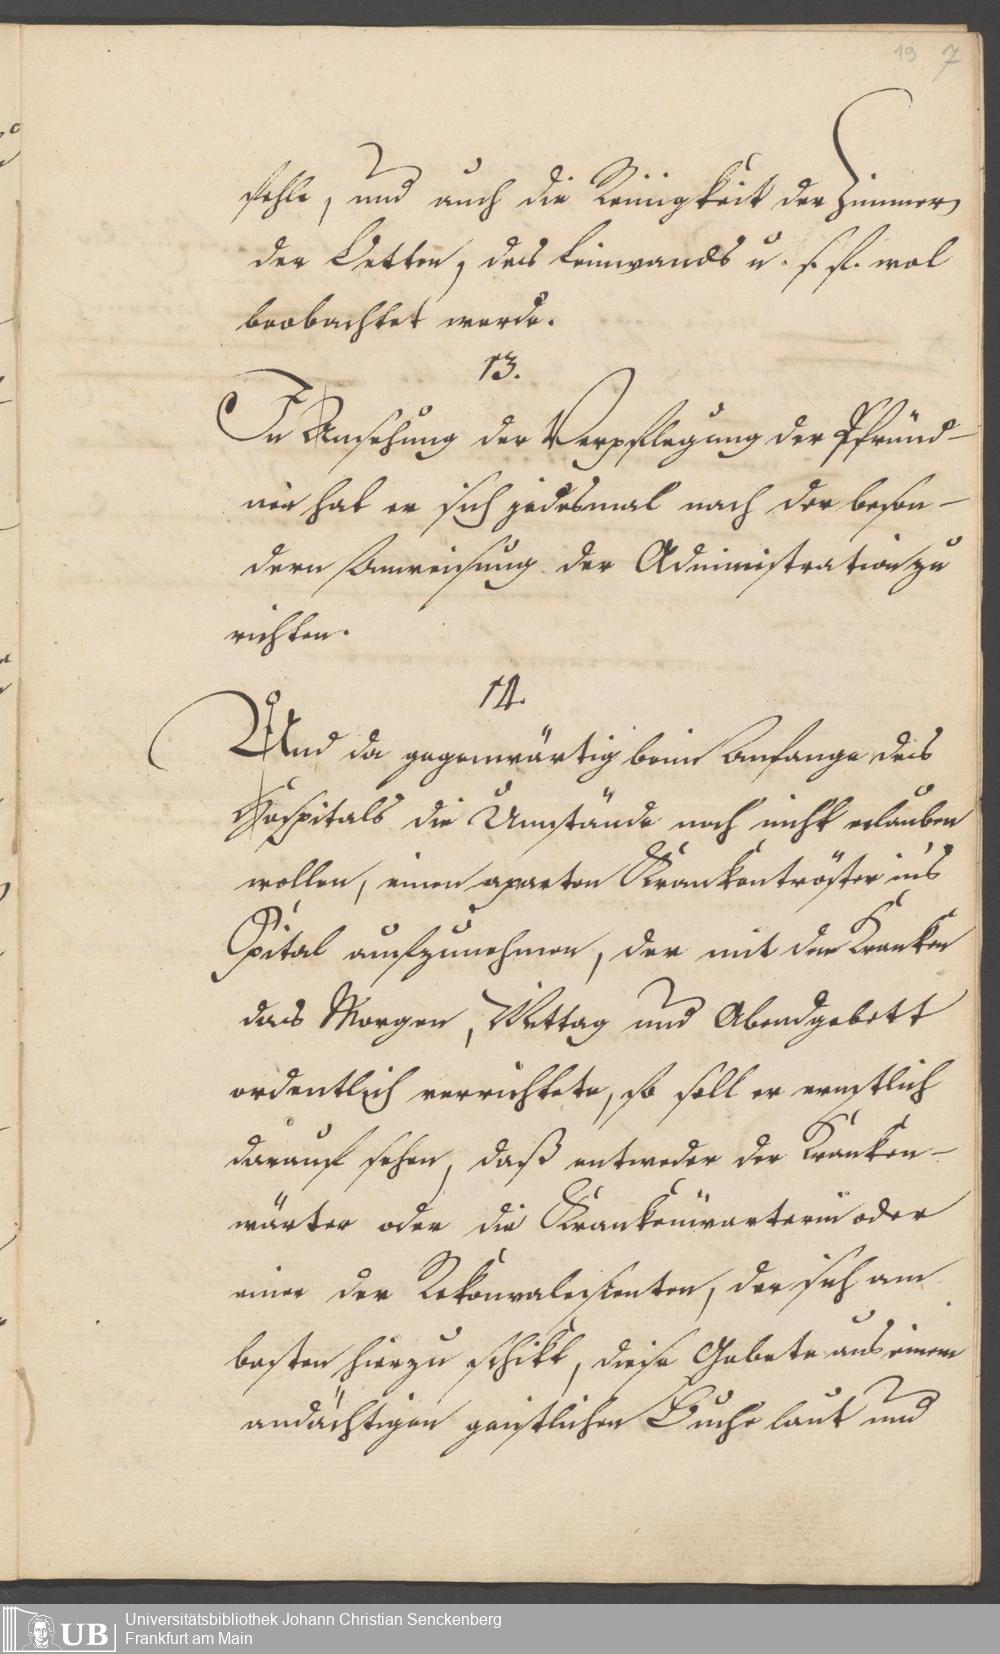 19 7
fehle, und auch die Reinigkeit der Zimmer,
der Betten, des Leinwands u. s. f. wol
beobachtet werde.
13.
In Ansehung der Verpflegung der Pfründ-
ner hat er sich jedesmal nach der beson-
dern Anweisung der Administration zu
richten.
14.
Und da gegenwärtig beim Anfange des
Hospitals die Umstände noch nicht erlauben
wollen, einen aparten Krankentröster ins
Spital aufzunehmen, der mit den Kranken
das Morgen, Mittag und Abendgebett
ordentlich verrichtete, so soll er ernstlich
darauf sehen, daß entweder der Kranken-
wärter oder die Krankenwarterin oder
einer der Rekonvaleszenten, der sich am
besten hierzu schikt, diese Gebete aus einem
andächtigen geistlichen Buche laut und
UB
Universitätsbibliothek Johann Christian Senckenberg
Frankfurt am Main